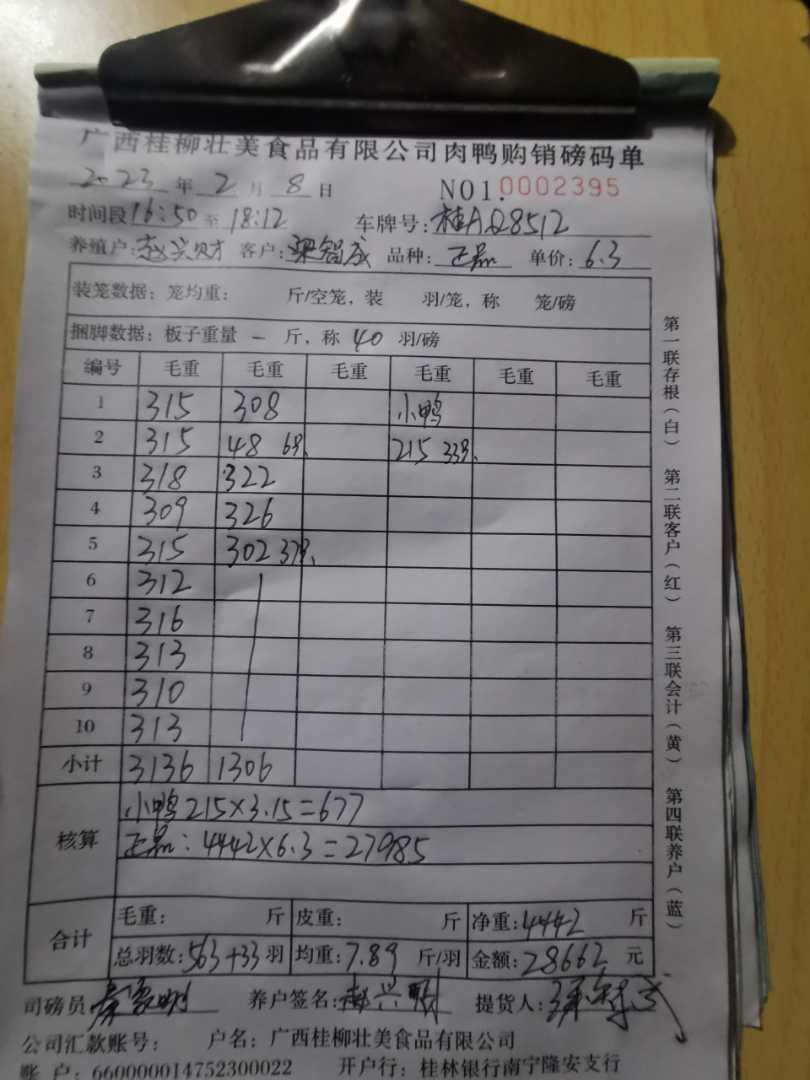 广西桂柳壮美食品有限公司肉鸭购销磅码单
2023 年 2 月 8 日 NO1.0002395
时间段16:50至18:12 车牌号:桂AQ8512
养殖户:赵兴财 客户:梁智成 品种:正品 单价:6.3
装笼数据:笼均重: 斤/空笼,装 羽/笼,称 笼/磅
捆脚数据:板子重量 — 斤,称 40 羽/磅
编号 毛重 毛重 毛重 毛重 毛重 毛重
1 315 308 小鸭
2 315 48 6只. 215 33只.
3 318 322
4 309 326
5 315 302 37只.
6 312
7 316
8 313
9 310
10 313
小计 3136 1306
核算
小鸭215×3.15=677
正品:4442×6.3=27985
合计
毛重: 斤 皮重: 斤 净重:4442 斤
总羽数:563+33羽 均重:7.89 斤/羽 金额:28662 元
司磅员 养户签名:赵兴财 提货人:
公司汇款账号: 户名:广西桂柳壮美食品有限公司
账 户:660000014752300022 开户行:桂林银行南宁隆安支行
第一联存根(白) 第二联客户(红) 第三联会计(黄) 第四联养户(蓝)